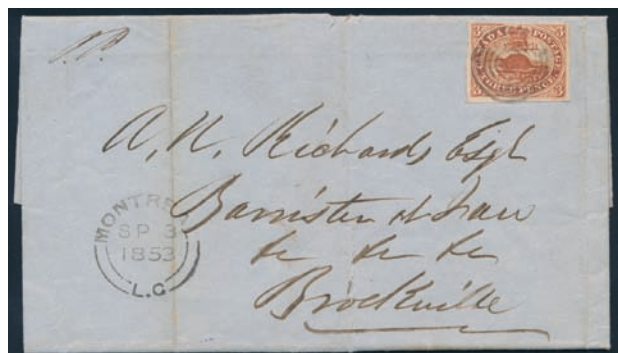 P.P.
3 CANADA POSTAGE 3
3 THREE PENCE 3
A. N. Richards Esqr
Barrister at Law
&c &c &c
Brockville
MONTREAL
SP 3
1853
L.C